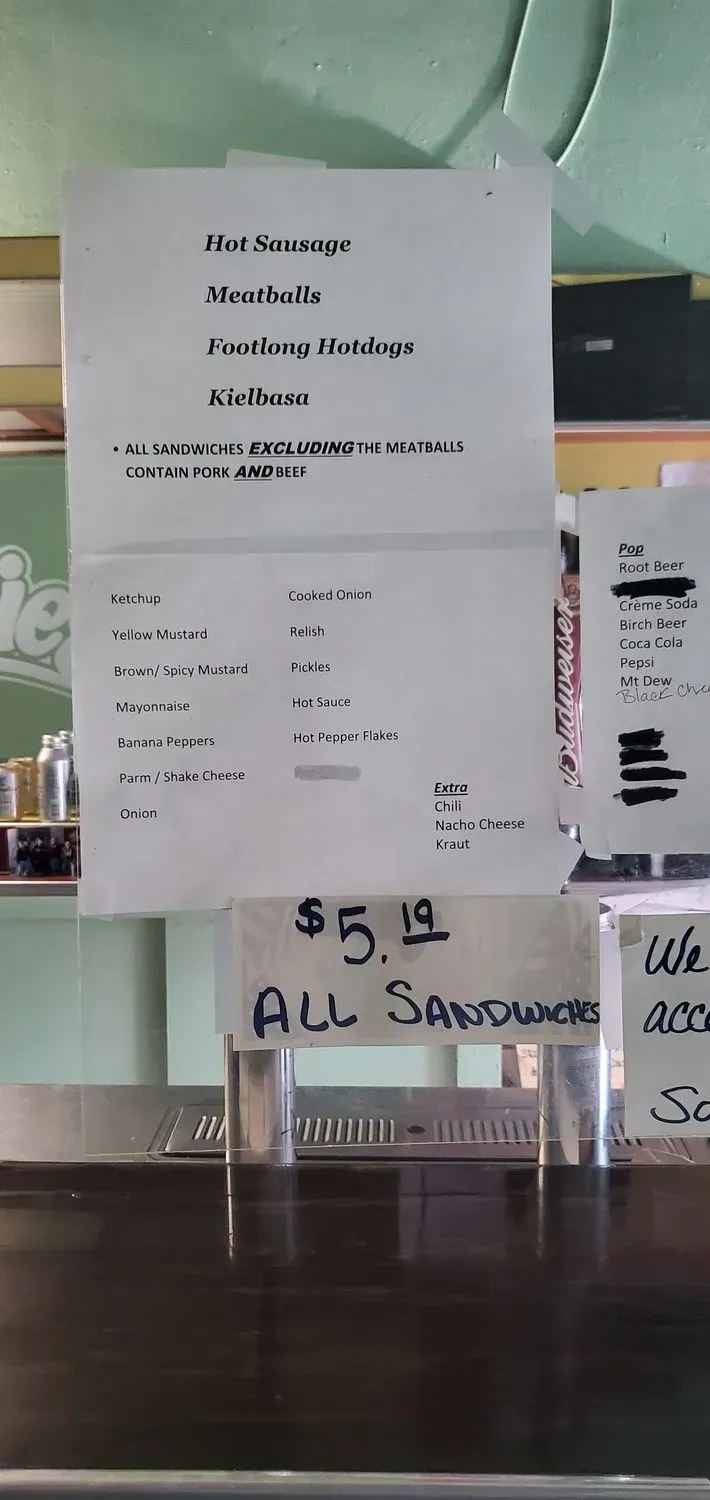 Hot Sausage
Meatballs
Footlong Hotdogs
Kielbasa
• ALL SANDWICHES EXCLUDING THE MEATBALLS
CONTAIN PORK AND BEEF
Ketchup
Yellow Mustard
Brown/ Spicy Mustard
Mayonnaise
Banana Peppers
Parm / Shake Cheese
Onion
Cooked Onion
Relish
Pickles
Hot Sauce
Hot Pepper Flakes
Extra
Chili
Nacho Cheese
Kraut
Pop
Root Beer
Crème Soda
Birch Beer
Coca Cola
Pepsi
Mt Dew
Black
$5.19
ALL SANDWICHES
We